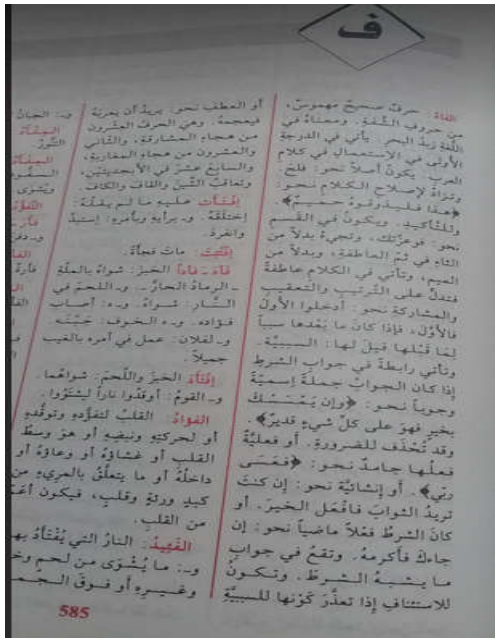 ف
الفاءُ: حرفٌ صحيحٌ مهموسٌ،
من حروفِ الشَّفةِ. ومعناهُ في
اللُّغةِ زبدُ البحرِ. يأتي في الدرجةِ
الأولى في الاستعمالِ في كلامِ
العربِ. يكونُ أصلاً نحو: فلحَ.
وتزادُ لإصلاحِ الكلامِ نحو:
﴿هذا فليذوقوهُ حميمٌ﴾
وللتأكيدِ. ويكونُ في القسمِ
نحو: فوعزَّتِك، وتجيءُ بدلاً من
الثاءِ في ثمَّ العاطفةِ، وبدلاً من
الميمِ، وتأتي في الكلامِ عاطفةً
فتدلُّ على الترتيبِ والتعقيبِ
والمشاركةِ نحو: أدخلوا الأولَ
فالأوَّلَ، فإذا كانَ ما بَعْدها سبباً
لِمَا قَبْلها قيلَ لها: السببيَّة.
وتأتي رابطةً في جوابِ الشرطِ
إذا كان الجوابُ جملةً إسميَّةً
وجوباً نحو: ﴿وإن يَمْسَسْكَ
بخيرٍ فهوَ على كلِّ شيءٍ قديرٌ﴾.
وقد تُحْذَف للضرورةِ. أو فعليَّةً
فعلُها جامدٌ نحو: ﴿فعَسَى
ربِّي﴾. أو إنشائيَّة نحو: إن كنتَ
تريدُ الثوابَ فافْعَل الخيرَ. أو
كانَ الشرطُ فعْلاً ماضياً نحو: إن
جاءكَ فأكرمهُ. وتقعُ في جوابِ
ما يشبهُ الشرطَ. وتكونُ
للاستئنافِ إذا تعذَّرَ كَوْنها للسببيَّةِ
أو العطفِ نحو: يريدُ أن يعربَهُ
فيعجمهُ. وهي الحرفُ العشرون
من هجاءِ المشارقةِ، والثاني
والعشرون من هجاءِ المغاربةِ،
والسابعَ عشرَ في الأبجديتين،
وتعاقبُ الثاءَ والقافَ والكافَ.
إفْتَأَتَ عليهِ ما لم يقلْهُ:
إختلقَهُ. وـ برأيهِ وبأمرهِ: إستبدَّ
وانفردَ.
إفْتُئِتَ: ماتَ فجأةً.
فأدَ ـَ فأداً الخبزَ: شواهُ بالملَّةِ
ـ الرمادُ الحارُّ ـ. وـ اللحمَ في
النَّارِ: شواهُ. وـ ه: أصابَ
فؤاده. وـ ه الخوفُ: جبَّنَه
وـ لفلانٍ: عمل في أمره بالغيب
جميلاً.
إفْتَأدَ الخبزَ واللَّحمَ: شواهُما.
وـ القومُ: أوقدُوا ناراً ليشتَوُوا.
الفؤادُ: القلبُ لتفؤُّدِهِ وتوقُّدِهِ
أو لحركتِهِ ونبضِهِ أو هوَ وسطُ
القلبِ أو غشاؤُهُ أو وعاؤُهُ أو
داخلُهُ أو ما يتعلَّقُ بالمريءِ من
كبدٍ ورئةٍ وقلبٍ، فيكون أعَمَّ
من القلبِ.
الفَئِيدُ: النارُ التي يُفْتَأدُ بها
وـ: ما يُشْوَى من لحمٍ
وغيرِهِ أو فوقَ
وـ: الجبانُ
التَّنُّورُ
585